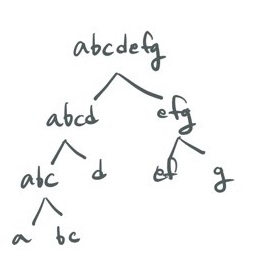 abcdefg
abcd efg
abc d ef g
a bc